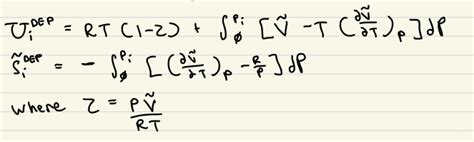 Ũᵢᴰᴱᴾ = RT (1-z) + ∫₀ᴾⁱ [Ṽ - T (∂Ṽ/∂T)ₚ] dP
S̃ᵢᴰᴱᴾ = - ∫₀ᴾⁱ [(∂Ṽ/∂T)ₚ - R/P] dP
where z = PṼ/RT